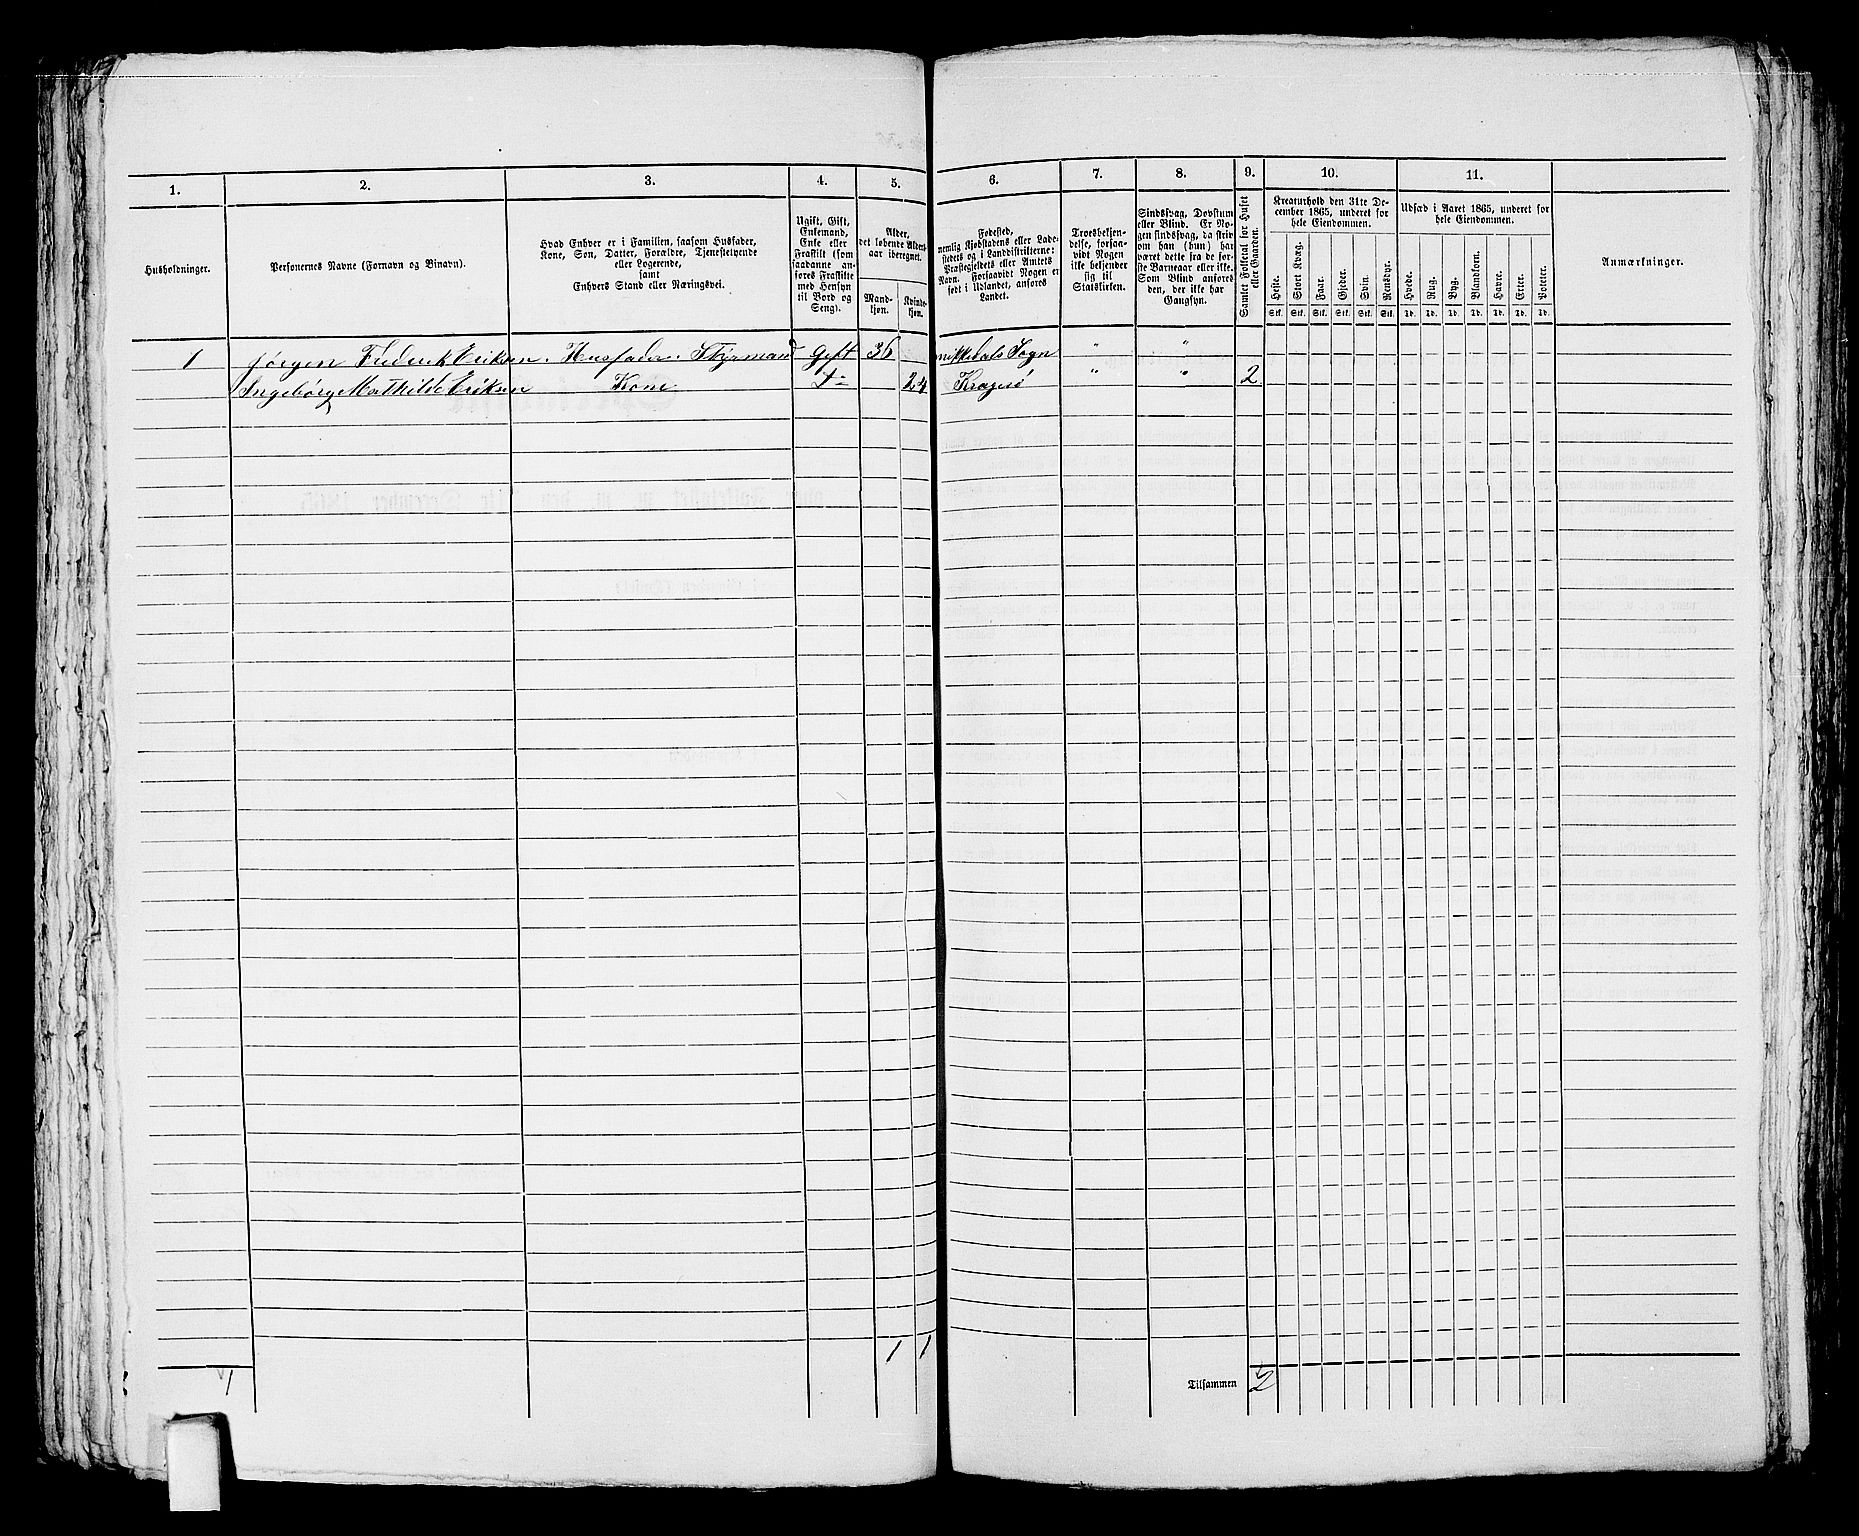 1. 2. 3. 4. 5. 6. 7. 8. 9. 10. 11.
Husholdninger.
Personernes Navne (Fornavn og Binavn).
Hvad Enhver er i Familien, saasom Husfader,
Kone, Søn, Datter, Forældre, Tjenestetyende
eller Logerende,
samt
Enhvers Stand eller Næringsvei.
Ugift, Gift,
Enkemand,
Enke eller
Fraskilt (som
saadanne an-
føres Fraskilte
med Hensyn
til Bord og
Seng).
Alder,
det løbende Alders-
aar iberegnet.
Mand-
kjøn.
Kvinde-
kjøn.
Fødested,
nemlig Kjøbstadens eller Lade-
stedets og i Landdistrikterne:
Præstegjeldets eller Amtets
Navn. Forsaavidt Nogen er
født i Udlandet, anføres
Landet.
Troesbekjen-
delse, forsaa-
vidt Nogen
ikke bekjender
sig til
Statskirken.
Sindssvag, Døvstum
eller Blind. Er No-
gen sindssvag, da skriv
om han (hun) har
været dette fra de før-
ste Barneaar eller ikke.
Som Blind anføres
den, der ikke har
Gangsyn.
Samlet Folketal for Huset
eller Gaarden.
Kreaturhold den 31te De-
cember 1865, underet for
hele Eiendommen.
Heste. Stort Kvæg. Faar. Gjeder. Svin. Rensdyr.
Stk. Stk. Stk. Stk. Stk. Stk.
Udsæd i Aaret 1865, underet for
hele Eiendommen.
Hvede. Rug. Byg. Blandkorn. Havre. Erter. Poteter.
Td. Td. Td. Td. Td. Td. Td.
Anmærkninger.
1 Jørgen Frederik Eriksen. Husfader. Styrmand Gift 36 Sogn " "
Ingebørg Mathilde Eriksen Kone D= 24 Kragerø " " 2
1 1
1 Tilsammen 2